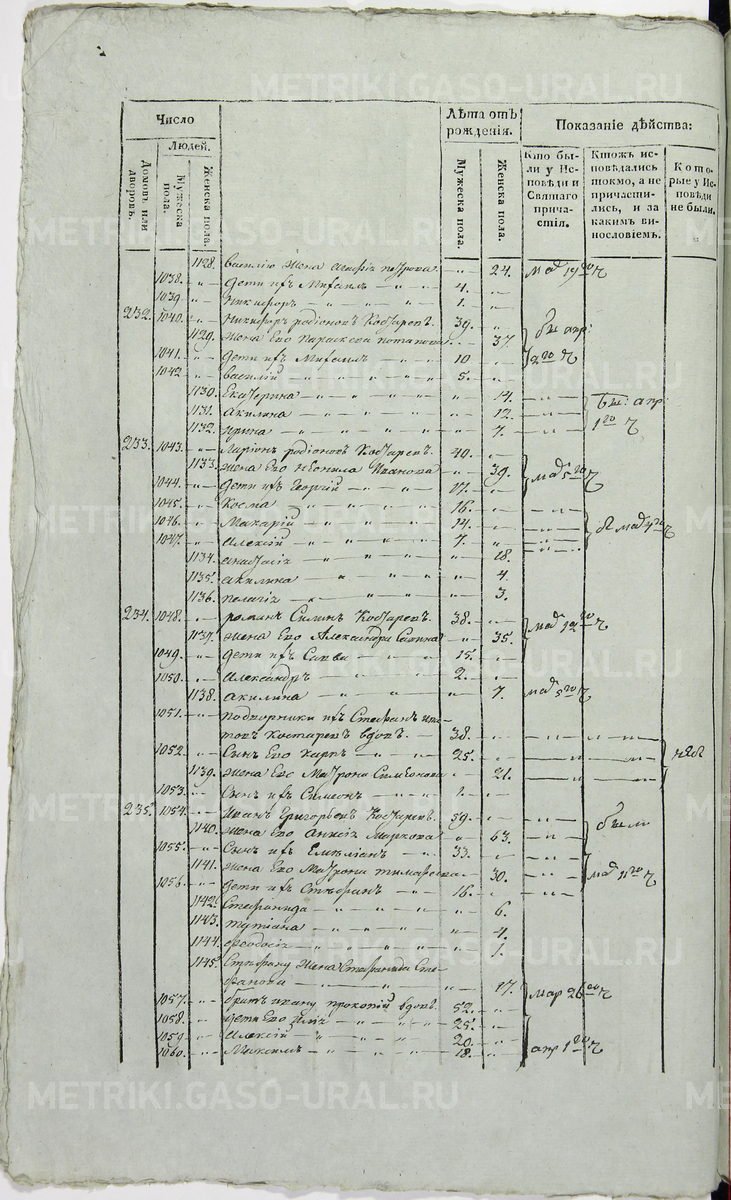 METRIKI.GASO-URAL.RU
Число
Лѣта отъ рожденія.
Показаніе дѣйства:
Людей.
Домовъ или дворовъ.
Мужеска пола.
Женска пола.
Мужеска пола.
Женска пола.
Кто были у Исповѣди и Святаго причастія.
Ктожъ исповѣдались токмо, а не причастились, и за какимъ винословіемъ.
Которые у Исповѣди не были.
1128. василію жена петрова 24.
1038. дети ихъ Михаилъ 4.
1039. Никифоръ 1.
232. 1040. Никифоръ родіоновъ Костаревъ. 39.
1129. жена Его Параскева потапова 37. апр:
1041. дети ихъ Михаилъ 10
1042 василий 5.
1130. Екатерина 14. апр:
1131. Акилина 12.
1132. Ирина 7.
233. 1043. Ларіонъ родіоновъ Костаревъ. 40.
1133. жена Его Неонила Иванова 39.
1044. дети ихъ Георгий 17.
1045. Косма 16.
1046. Макарій 14.
1047. алексій 7.
1134. анастасія 18.
1135. акилина 4.
1136. пелагія 3.
234. 1048. романъ Силинъ Костаревъ. 38.
1137. жена Его Александра 35.
1049. дети ихъ Савва 15.
1050. Александръ 2.
1138. акилина 7.
1051. подворники ихъ Стефанъ Костаревъ вдовъ. 38.
1052. Сынъ Его карпъ 25.
1139. жена Его Матрона Симеонова 21.
1053. Сынъ ихъ Симеонъ 1.
235. 1054. Иванъ Григорьевъ Костаревъ. 59. были
1140. жена Его Анисія Маркова 63.
1055. Сынъ ихъ Емѣліанъ 33.
1141. жена Его Матрона тимофеева 30.
1056. дети ихъ Стефанъ 16.
1142. Стефанида 6.
1143. татіана 4.
1144. феодосія 1.
1145. Стефану жена Стефанида Стефанова 17. мар 26
1057. братъ ивану прокопій вдовъ. 52.
1058. дети Его илія 25.
1059. Алексій 20.
1060. Максимъ 18. апр 1